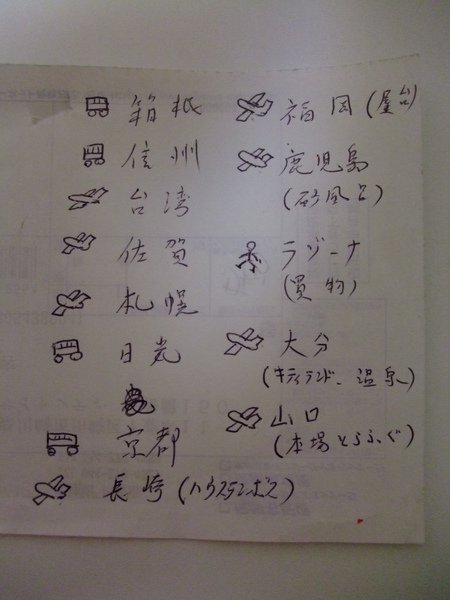 箱根
信州
台湾
佐賀
札幌
日光
京都
長崎(ハウステンボス)
福岡(屋台)
鹿児島
(砂風呂)
ラゾーナ
(買物)
大分
(キティランド、温泉)
山口
(本場とらふぐ)